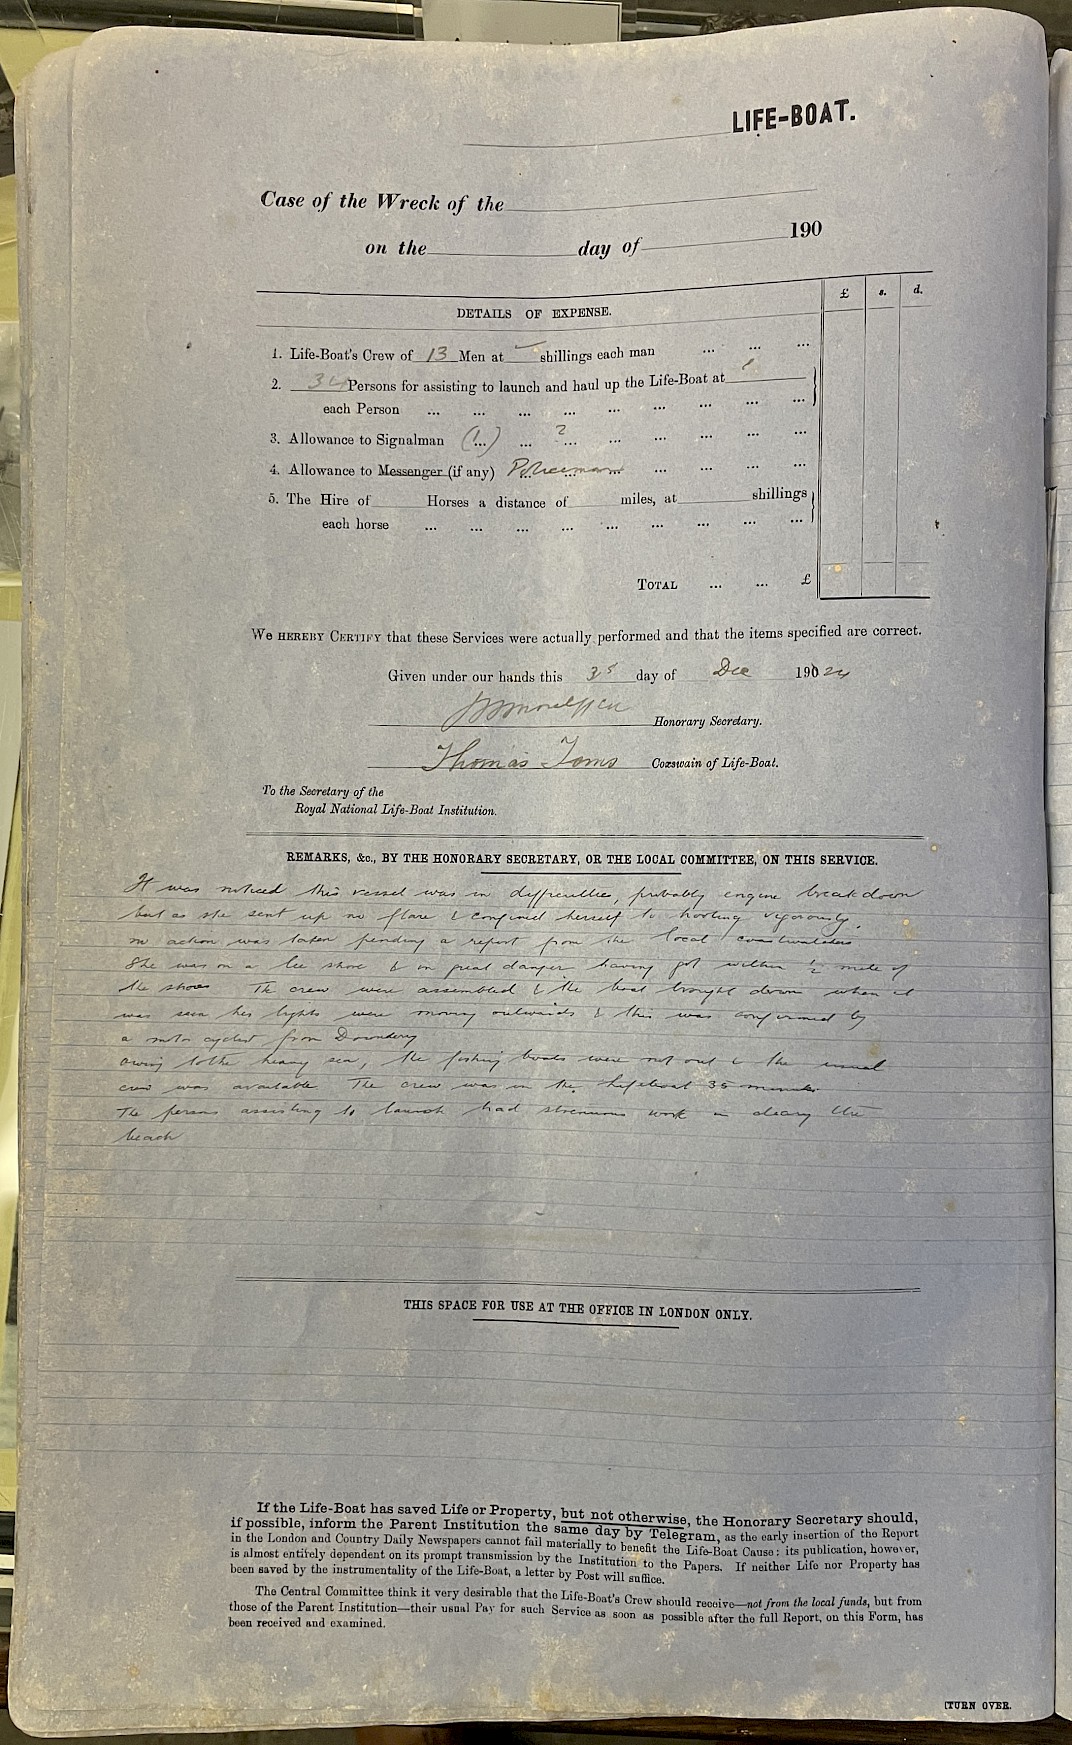 LIFE-BOAT.
Case of the Wreck of the
on the day of 190
£ s. d.
DETAILS OF EXPENSE.
1. Life-Boat's Crew of 13 Men at shillings each man ... ... ...
2. 34 Persons for assisting to launch and haul up the Life-Boat at
each Person ... ... ... ... ... ... ... ... ...
3. Allowance to Signalman (1...) ... 2... ... ... ... ... ...
4. Allowance to Messenger (if any) Policeman ... ... ... ...
5. The Hire of Horses a distance of miles, at shillings
each horse ... ... ... ... ... ... ... ... ...
TOTAL ... ... £
We HEREBY CERTIFY that these Services were actually performed and that the items specified are correct.
Given under our hands this day of Dec 19024
Honorary Secretary.
Thomas Toms Coxswain of Life-Boat.
To the Secretary of the
Royal National Life-Boat Institution.
REMARKS, &c., BY THE HONORARY SECRETARY, OR THE LOCAL COMMITTEE, ON THIS SERVICE.
It was noticed this vessel was in difficulties, probably engine breakdown
but as she sent up no flare & confined herself to hooting vigorously.
no action was taken pending a report from the local coastwatchers
She was on a lee shore & in great danger having got within ½ mile of
the shore The crew were assembled & the boat brought down when it
was seen her lights were moving outwards & this was confirmed by
a motor cyclist from Downderry
owing to the heavy sea, the fishing boats were not out & the usual
crew was available The crew was in the lifeboat 35 minutes
The persons assisting to launch had strenuous work in clearg the
beach
THIS SPACE FOR USE AT THE OFFICE IN LONDON ONLY.
If the Life-Boat has saved Life or Property, but not otherwise, the Honorary Secretary should,
if possible, inform the Parent Institution the same day by Telegram, as the early insertion of the Report
in the London and Country Daily Newspapers cannot fail materially to benefit the Life-Boat Cause: its publication, however,
is almost entirely dependent on its prompt transmission by the Institution to the Papers. If neither Life nor Property has
been saved by the instrumentality of the Life-Boat, a letter by Post will suffice.
The Central Committee think it very desirable that the Life-Boat's Crew should receive—not from the local funds, but from
those of the Parent Institution—their usual Pay for such Service as soon as possible after the full Report, on this Form, has
been received and examined.
[TURN OVER.